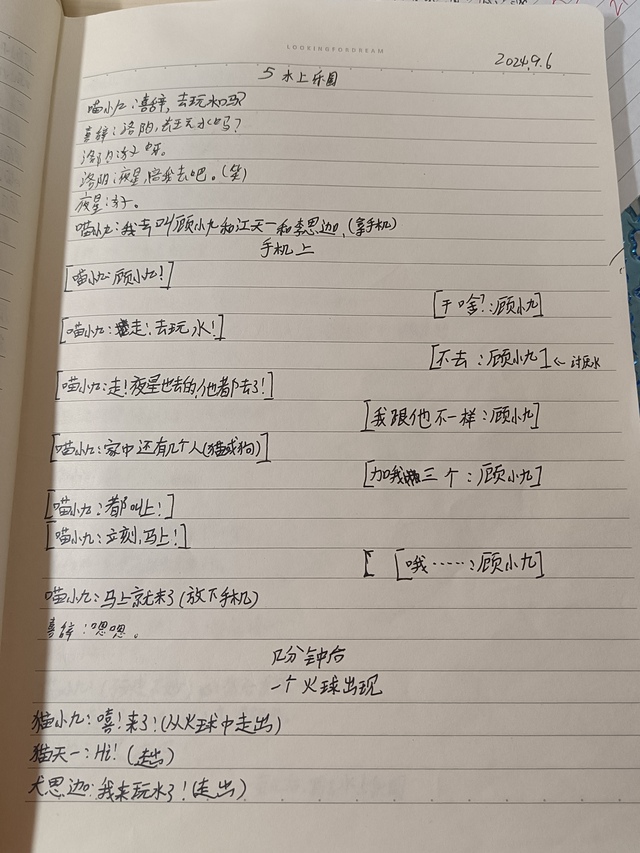 LOOKINGFORDREAM
2024.9.6
5 水上乐园
喵小九:喜辞,去玩水吗?
喜辞:洛阳,去玩水吗?
洛阳:好呀。
洛阳:夜星,陪我去吧。(笑)
夜星:好。
喵小九:我去叫顾小九和江天一和李思边。(拿手机)
手机上
[喵小九:顾小九!]
[干啥?:顾小九]
[喵小九:走!去玩水!]
[不去:顾小九]←讨厌水
[喵小九:走!夜星也去的,他都去了!]
[我跟他不一样:顾小九]
[喵小九:家中还有几个人(猫或狗)]
[加我三个:顾小九]
[喵小九:都叫上!]
[喵小九:立刻,马上!]
[哦……:顾小九]
喵小九:马上就来了(放下手机)
喜辞:嗯嗯。
几分钟后
一个火球出现
猫小九:嘻!来了!(从火球中走出)
猫天一:Hi!(走出)
犬思边:我来玩水了!(走出)